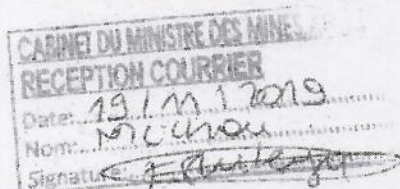 CABINET DU MINISTRE DES MINES
RECEPTION COURRIER
Date: 19/11/2019
Nom:
Signature